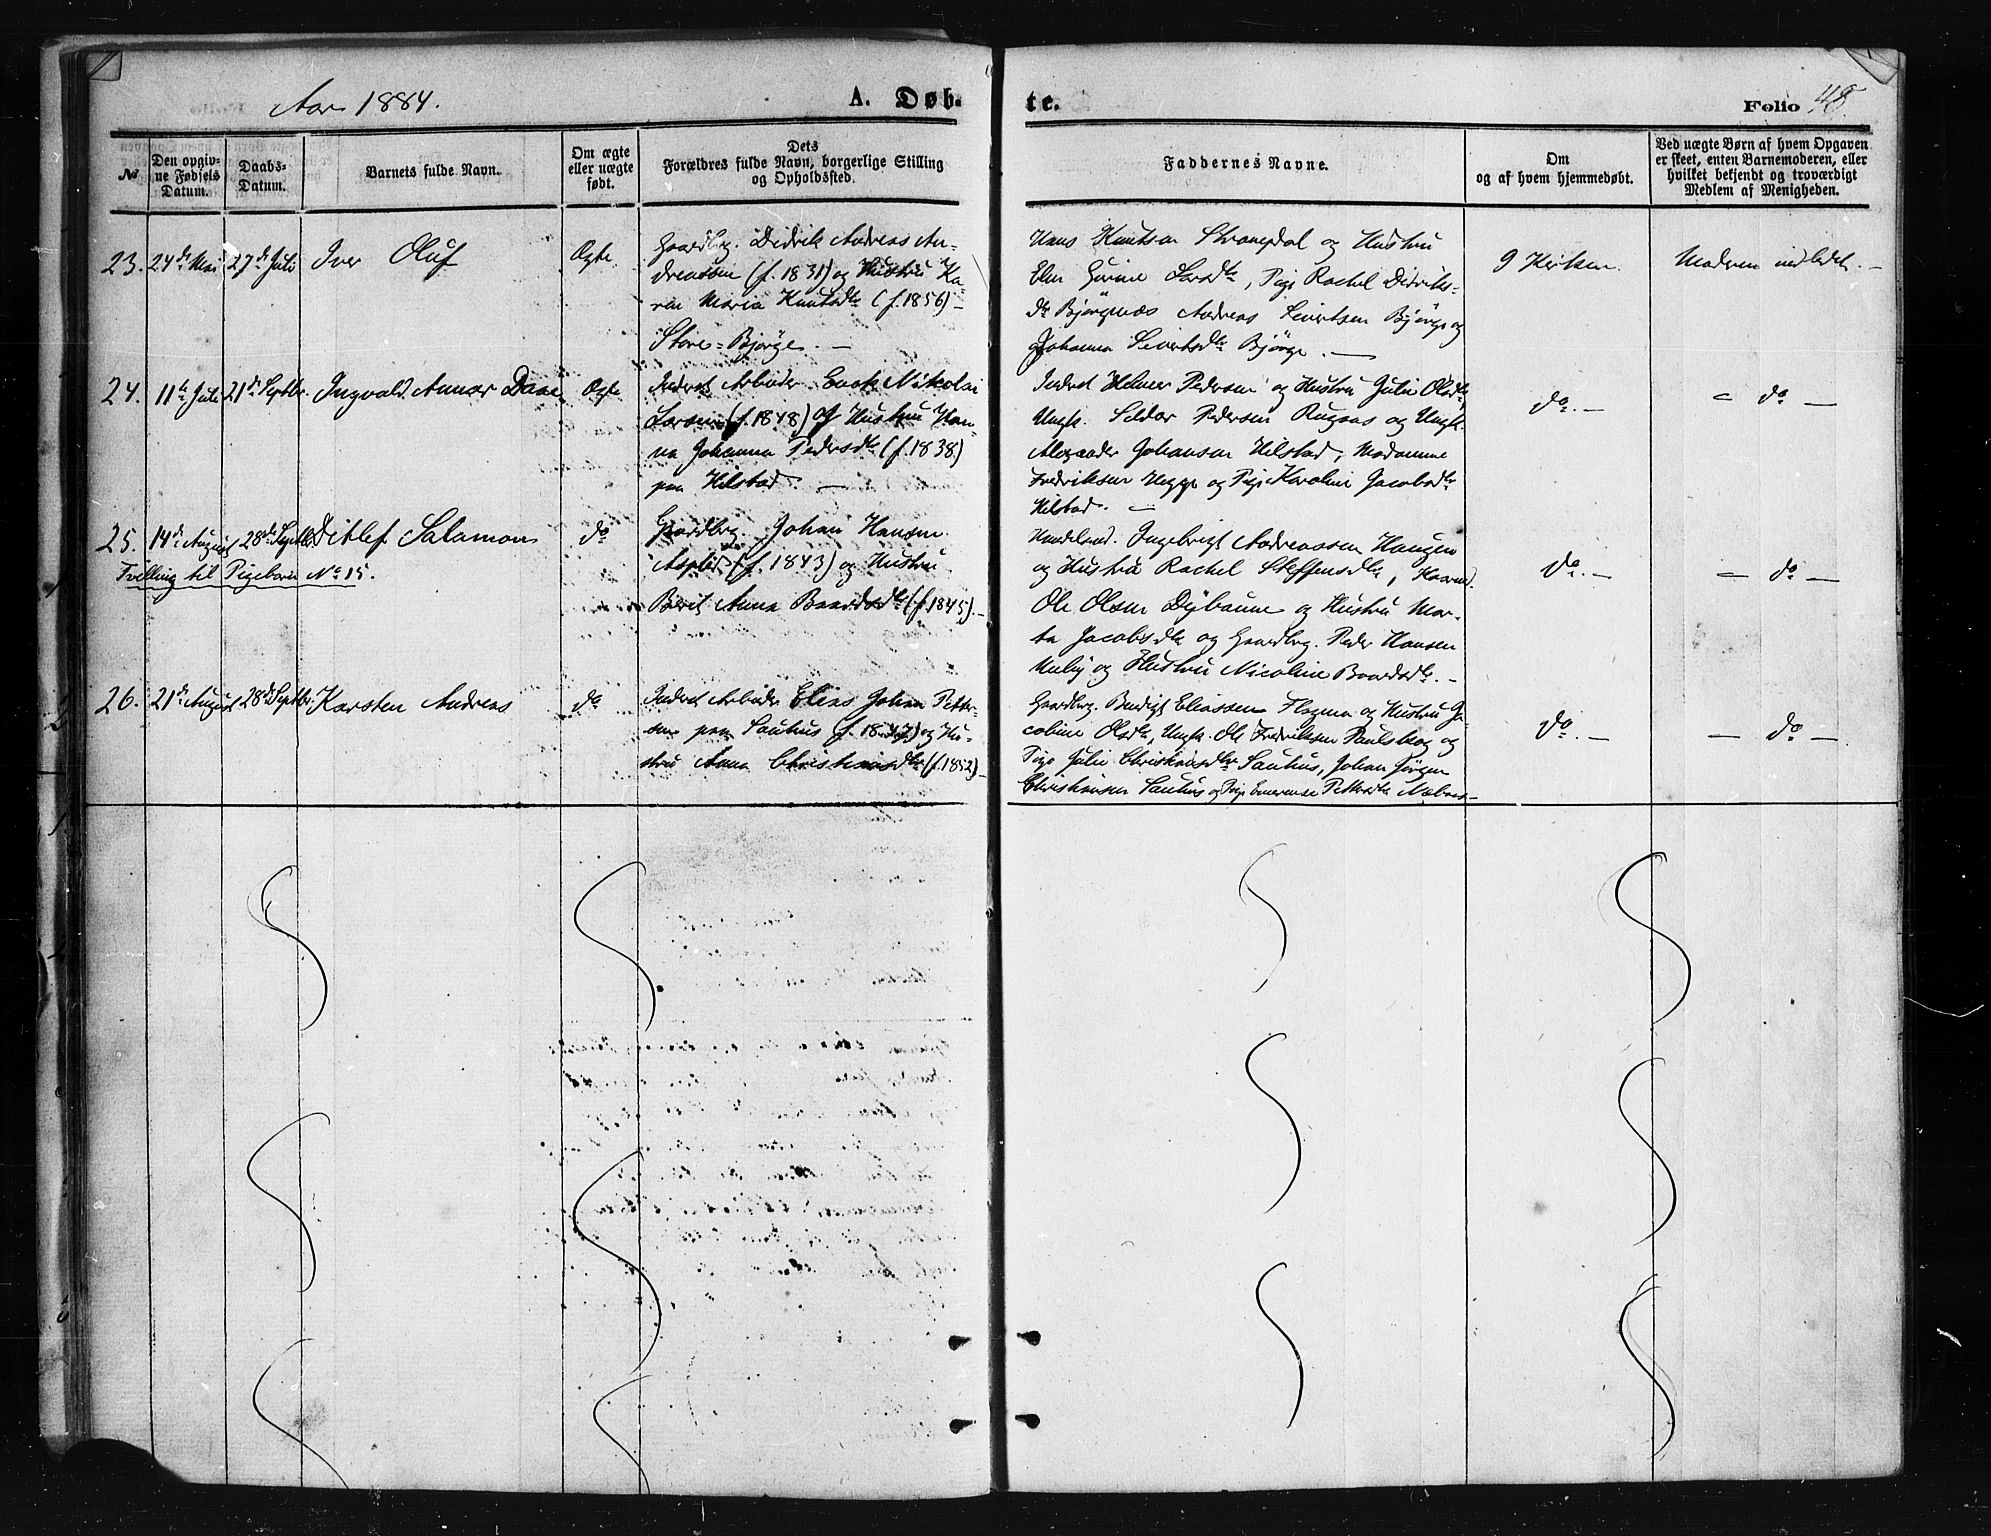 Aar 1884.
A. Døb-
te.
Folio 48.
№
Den opgiv-
ne Fødsels
Datum.
Daabs-
Datum.
Barnets fulde Navn.
Om ægte
eller uægte
født.
Dets
Forældres fulde Navn, borgerlige Stilling
og Opholdssted.
Faddernes Navne.
Om
og af hvem hjemmedøbt.
Ved uægte Børn af hvem Opgaven
er skeet, enten Barnemoderen, eller
hvilket bekjendt og troværdigt
Medlem af Menigheden.
23. 24de Mai 27de Juli Iver Oluf Ægte
Gaardbrg. Didrik Andreas An-
dreassen (f. 1831) og Hustru Ka-
ren Maria Knutsdtr (f. 1856) –
Store-Bjørge. –
Hans Knutsen Straumdal og Hustru
Elen Larsdtr, Pige Rachel Didriks-
dtr Bjørgnæs Andreas Sivertsen Bjørge og
Johanna Sivertsdtr Bjørge. –
I Kirken.
Moderen indledet. –
24. 11te Juli 21de Septbr. Ingvald Annar Daae Ægte
Inderst Arbeider Enok Nikolai
Larsen (f. 1848) og Hustru Han-
na Johanna Pedersdtr (f. 1838)
paa Hilstad. –
Inderst Helmer Pedersen og Hustru Julie Olsdtr,
Ungk. Seldor Pedersen og Ungk.
Alexander Johansen Hilstad, Madamme
Fredriksen og Pige Karoline Jacobsdtr
Hilstad. –
do. –
– do –
25. 14de August 28de Septbr. Ditlef Salamon do
Tvilling til Pigebarn No 15.
Gaardbrg. Johan Hansen
Asplid (f. 1843) og Hustru
Berit Anna Baardsdtr (f. 1845). –
Handelsmd. Ingebrigt Andreassen Haugen
og Hustru Rachel Steffensdtr,
Ole Olsen og Hustru Mar-
ta Jacobsdtr og Gaardbrg. Peder Hansen
og Hustru Nicoline Baardsdtr. –
do. –
– do –
26. 21de August 28de Septbr. Karsten Andreas do
Inderst Arbeider Elias Johan Petter-
sen paa Sauhus (f. 1847) og Hu-
stru Anna Christiansdtr (f. 1852) –
Gaardbrg. Bendigt Eliassen og Hustru Ja-
cobine Olsdtr, Ungk. Ole Fredriksen Paulskog og
Pige Julie Christiansdtr Sauhus, Johan Jørgen
Christiansen Sauhus og Pige Emerense Pettersdtr
do. –
– do –